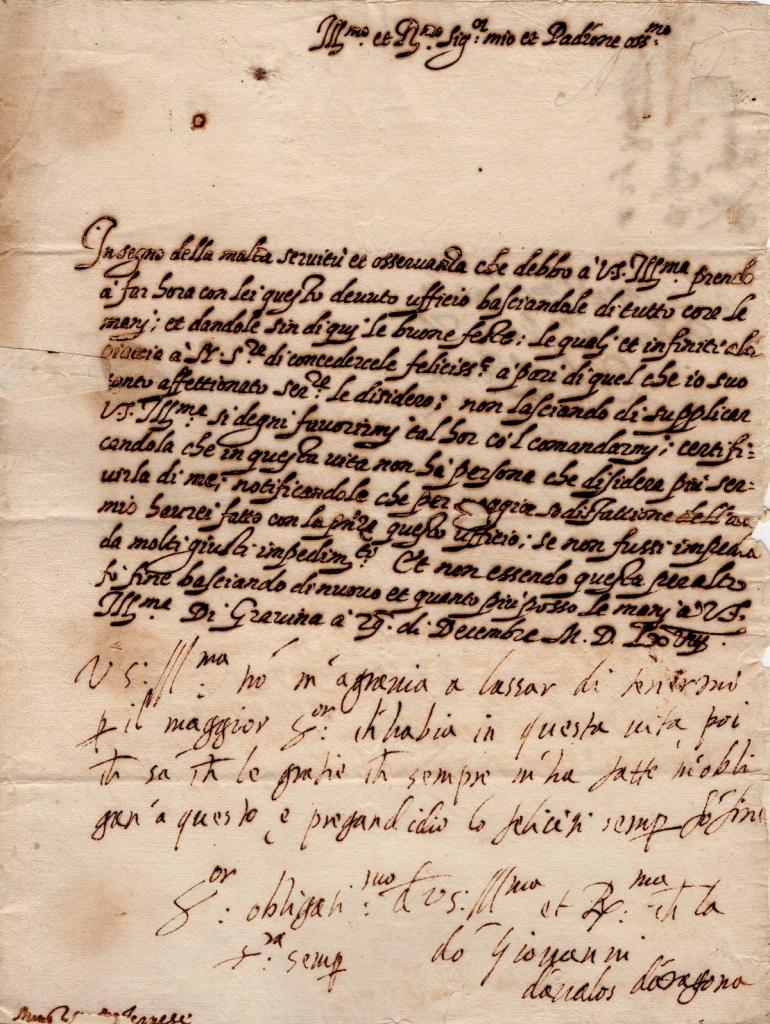 Ill.mo et R.mo Sig.or mio et Padrone oss.mo
In segno della molta servitù et osservanza che debbo à V.S. Ill.ma prendo
à far hora con lei questo devuto ufficio basciandole di tutto core le
manj; et dandole sin di quj le buone feste: le qualj et infiniti altri
piaccia à N. S.re di concedercele feliciss.e à pari di quel che io suo
tanto affettionato ser.re le disidero; non lasciando di supplicar
V.S. Ill.ma si degni favorirmj tal hor co'l comandarmj; certifi=
candola che in questa vita non hà persona che disidera più ser=
virla di me; notificandole che per maggior sodisfattione dell'
mio haurei fatto con la pñza questo ufficio; se non fussi impedito
da molti giusti impedim.ti Et non essendo questa per altro
fò fine basciando di nuovo et quanto più posso le manj à V.S.
Ill.ma Di Gravina à 29. di Decembre M. D.
V S: Ill.ma nõ m'agravia a lassar di tenermi
ꝑ il maggior s.or: ch'habia in questa vita poi
ch̃ sa ch̃ le gratie ch̃ sempre m'ha fatte m'obli
gan' a questo, e pregand idio lo feliciti semꝑ fo fine
S.or: obligati.mo: d̃ V S: Ill.ma et R.ma: ch̃ la
s.ra: semꝑ
dõ Giovanni
dàvalos dàragona